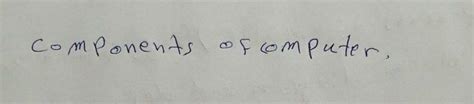 components of computer.